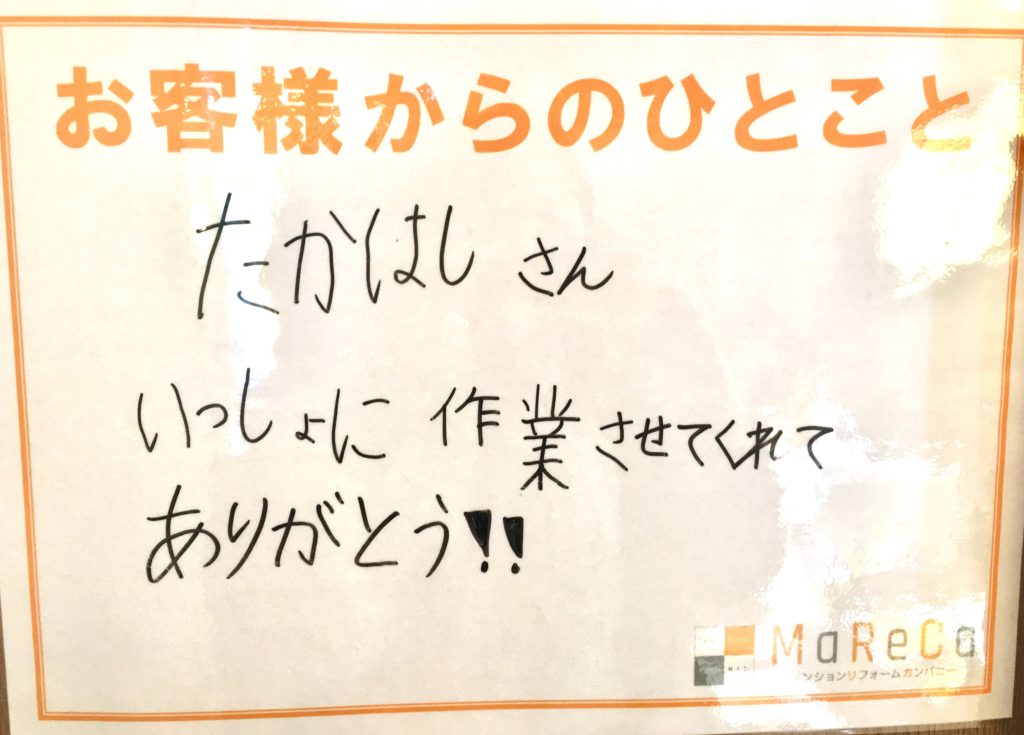 お客様からのひとこと
たかはし さん
いっしょに 作業 させてくれて
ありがとう!!
MaReCa
ンションリフォームカンパニー